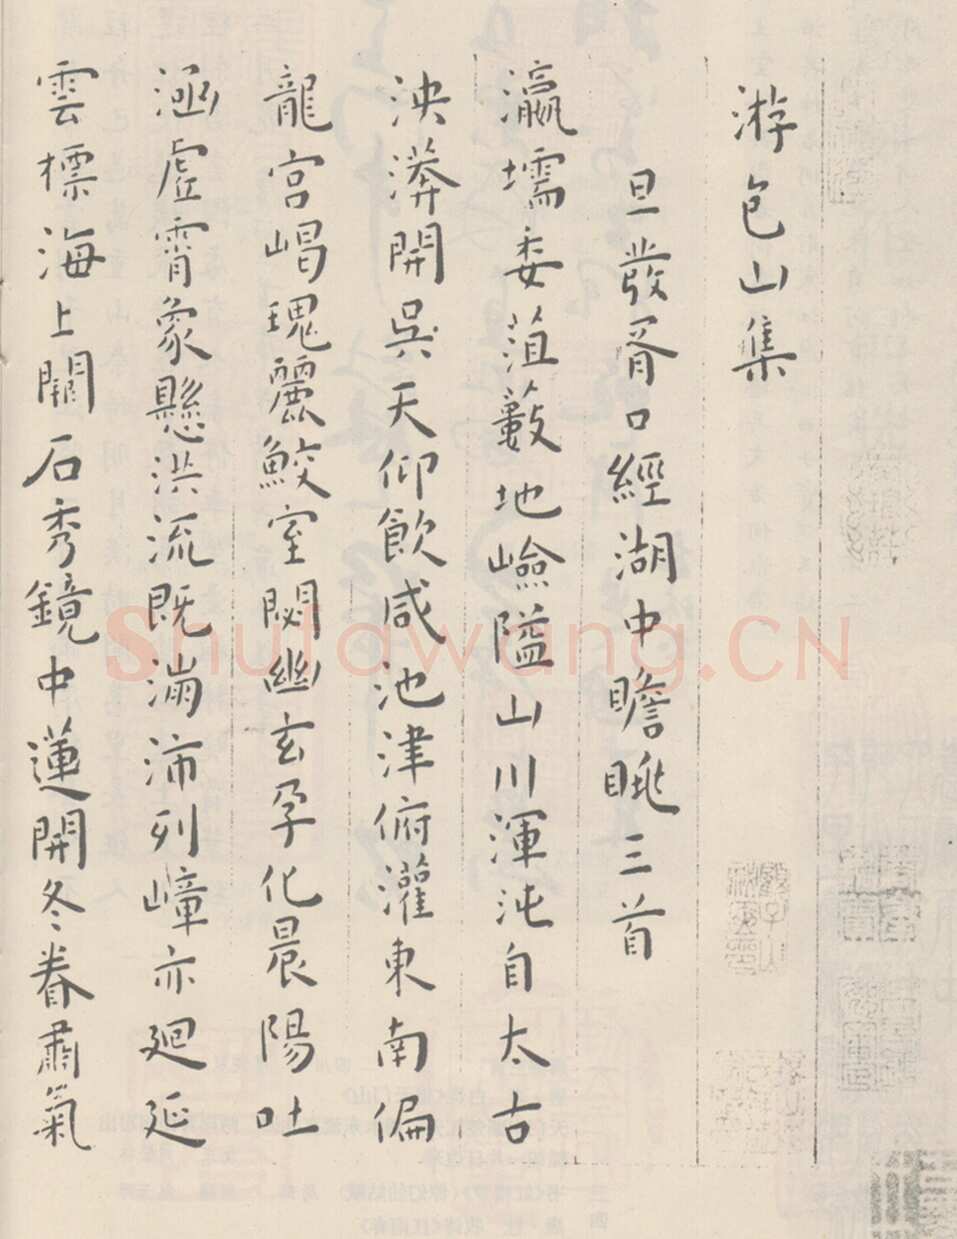 游包山集
旦發胥口經湖中瞻眺三首
瀛壖委菹藪地嶮隘山川渾沌自太古
泱漭開吳天仰飲咸池津俯灌東南偏
龍宮崵瑰麗鮫室閟幽玄孕化晨陽吐
涵虛霄象懸洪流既淌沛列嶂亦廻延
雲標海上闕石秀鏡中蓮開冬眷肅氣
Shufawang.CN